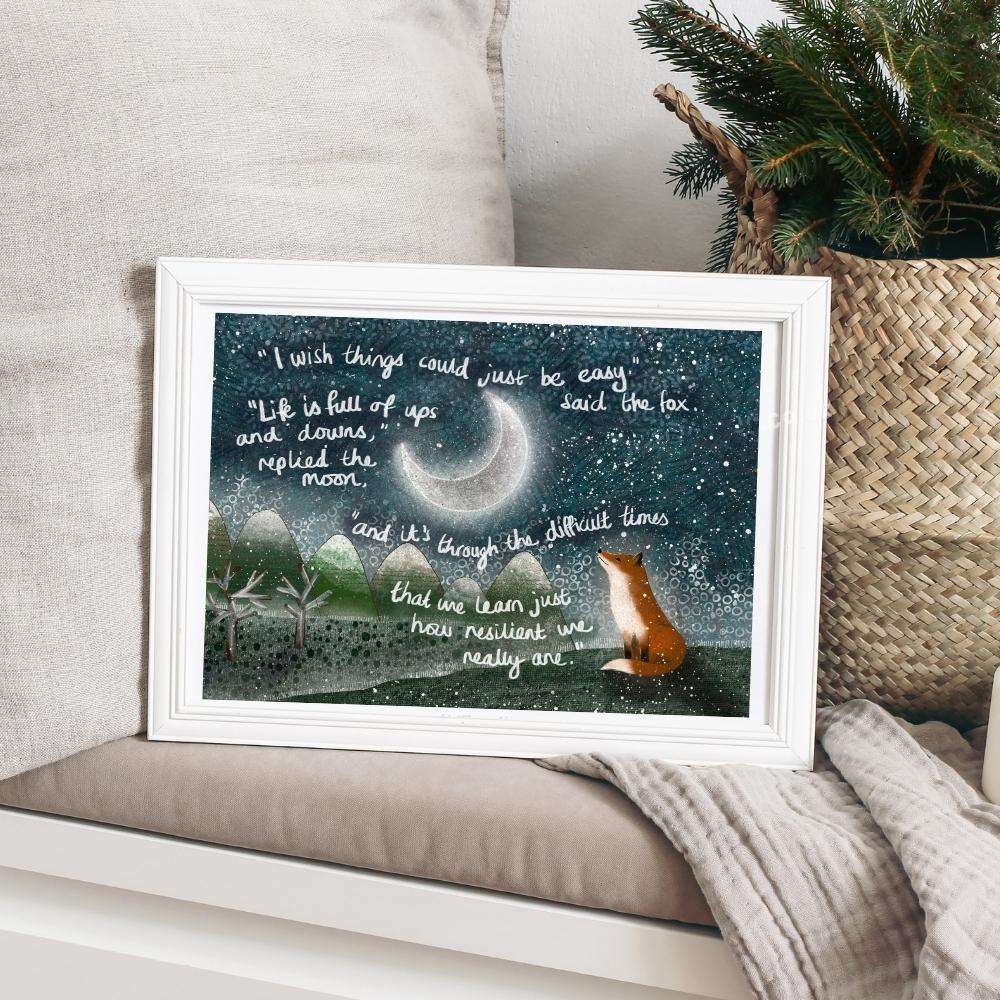 "I wish things could just be easy"
said the fox.
"Life is full of ups
and downs,"
replied the
moon,
"and it's through the difficult times
that we learn just
how resilient we
really are."